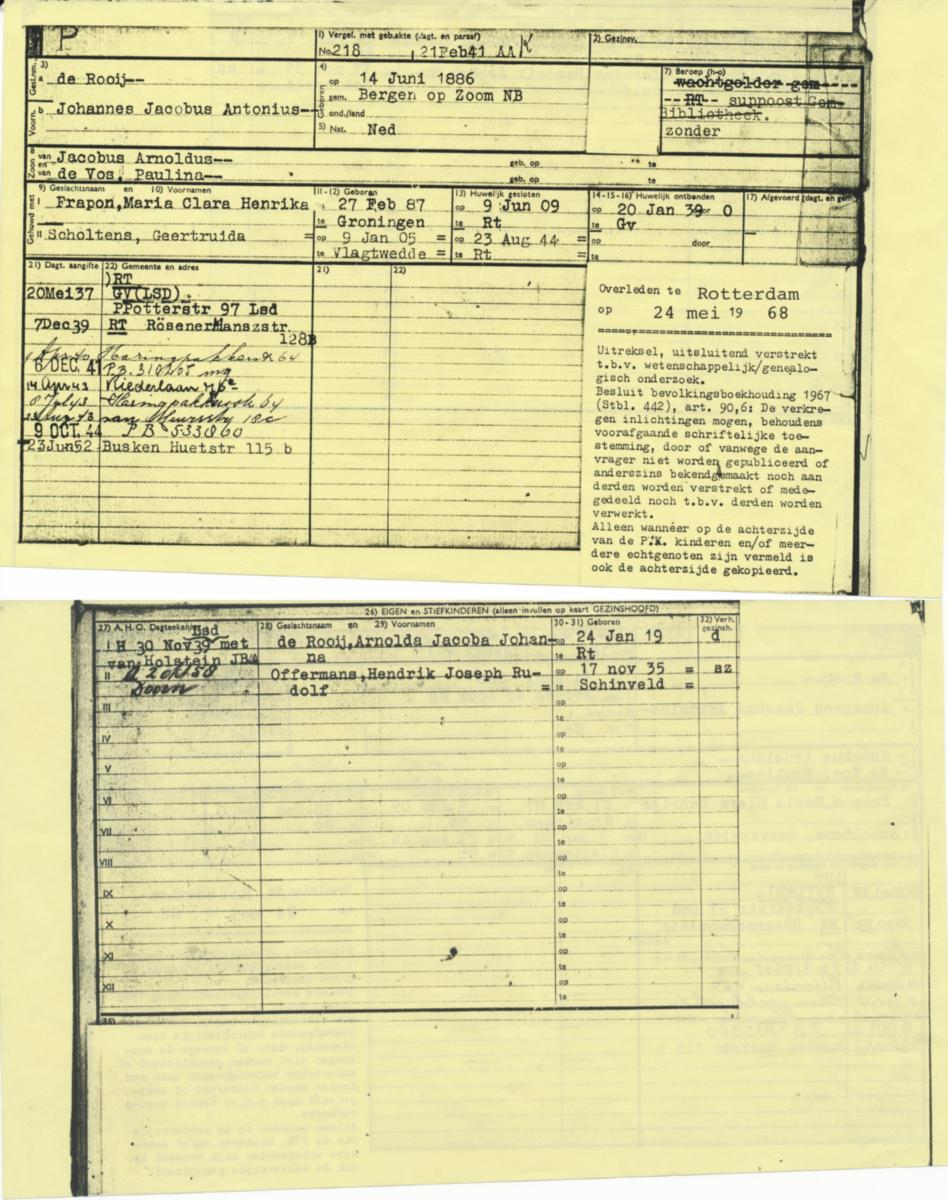 P
1) Vergel. met geb.akte (dagt. en paraaf)
No. 218 , 21Feb41 AA
2) Gezinsv.
Gesl.nm. 3)
a de Rooij--
Voorn. b Johannes Jacobus Antonius--
4) Geboren
op 14 Juni 1886
gem. Bergen op Zoom NB
ond./land
5) Nat. Ned
7) Beroep (h-o)
wachtgelder gem----
--RT-- suppoost Gem-
Bibliotheek.
zonder
Zoon 8
van Jacobus Arnoldus-- geb. op te
en van de Vos, Paulina-- geb. op te
Gehuwd met
9) Geslachtsnaam en 10) Voornamen
I Frapon,Maria Clara Henrika
II Scholtens, Geertruida =
11-12) Geboren
op 27 Feb 87
te Groningen
op 9 Jan 05 =
te Vlagtwedde =
13) Huwelijk gesloten
op 9 Jun 09
te Rt
op 23 Aug 44 =
te Rt =
14-15-16) Huwelijk ontbonden
op 20 Jan 39 door O
te Gv
op door
te
17) Afgevoerd (dagt. en gem.)
21) Dagt. aangifte 22) Gemeente en adres 21) 22)
)RT
20Mei37 GV(LSD).
PPotterstr 97 Lsd
7Dec39 RT RösenerManszstr.
128B
Haringpakkerstr 64
6 DEC. 41 P.B.
14 Apr 43
8 Jul 43 64
18c
9 OCT. 44 P B 533860
23Jun52 Busken Huetstr 115 b
Overleden te Rotterdam
op 24 mei 19 68
==============================
Uitreksel, uitsluitend verstrekt
t.b.v. wetenschappelijk/genealo-
gisch onderzoek.
Besluit bevolkingsboekhouding 1967
(Stbl. 442), art. 90,6: De verkre-
gen inlichtingen mogen, behoudens
voorafgaande schriftelijke toe-
stemming, door of vanwege de aan-
vrager niet worden gepubliceerd of
anderszins bekendgemaakt noch aan
derden worden verstrekt of mede-
gedeeld noch t.b.v. derden worden
verwerkt.
Alleen wannéer op de achterzijde
van de P.K. kinderen en/of meer-
dere echtgenoten zijn vermeld is
ook de achterzijde gekopieerd.
26) EIGEN en STIEFKINDEREN (alleen invullen op kaart GEZINSHOOFD)
27) A.H.O. Dagteekening 28) Geslachtsnaam en 29) Voornamen 30-31) Geboren 32) Verh. gezinsh.
Lsd
I H 30 Nov39 met de Rooij,Arnolda Jacoba Johan- op 24 Jan 19 d
van Holstein JBA na te Rt
II A 2 okt 58 Offermans,Hendrik Joseph Ru- op 17 nov 35 = az
Doorn dolf = te Schinveld =
III op
te
IV op
te
V op
te
VI op
te
VII op
te
VIII op
te
IX op
te
X op
te
XI op
te
XII op
te